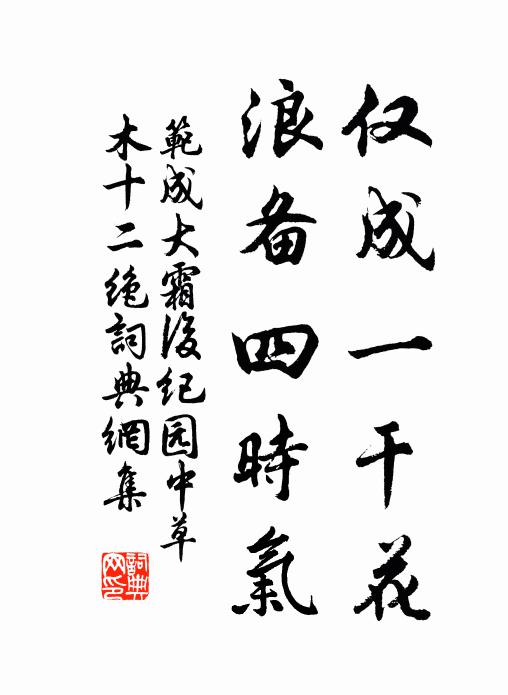 仅成一干花
浪备四時氣
範成大霜後纪园中草
木十二绝詞典網集
詞典
网印